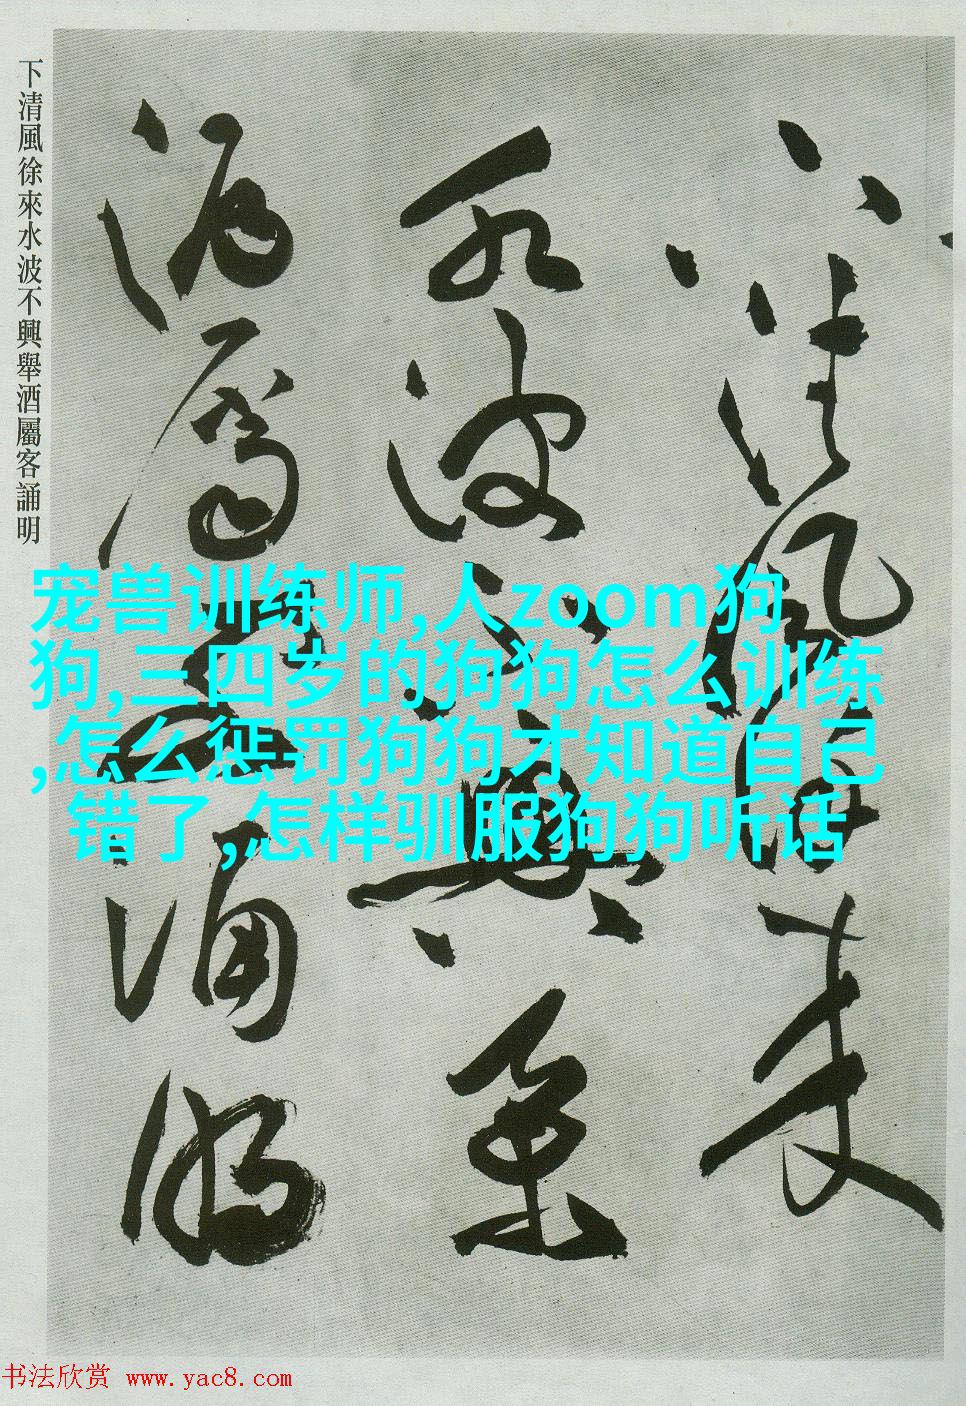 下清風徐來水波不興舉酒屬客誦明
下清風徐來
水波不興舉
酒屬客誦明
宠兽训练师,人zoom狗
狗,三四岁的狗狗怎么训练
,怎么惩罚狗狗才知道自己
错了,怎样驯服狗狗听话
书法欣赏 www.yac8.com